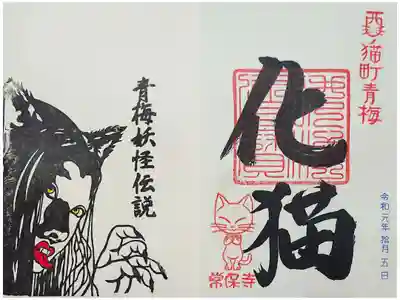 西ノ猫町青梅
化猫
令和元年拾月五日
常保寺
青梅妖怪伝説